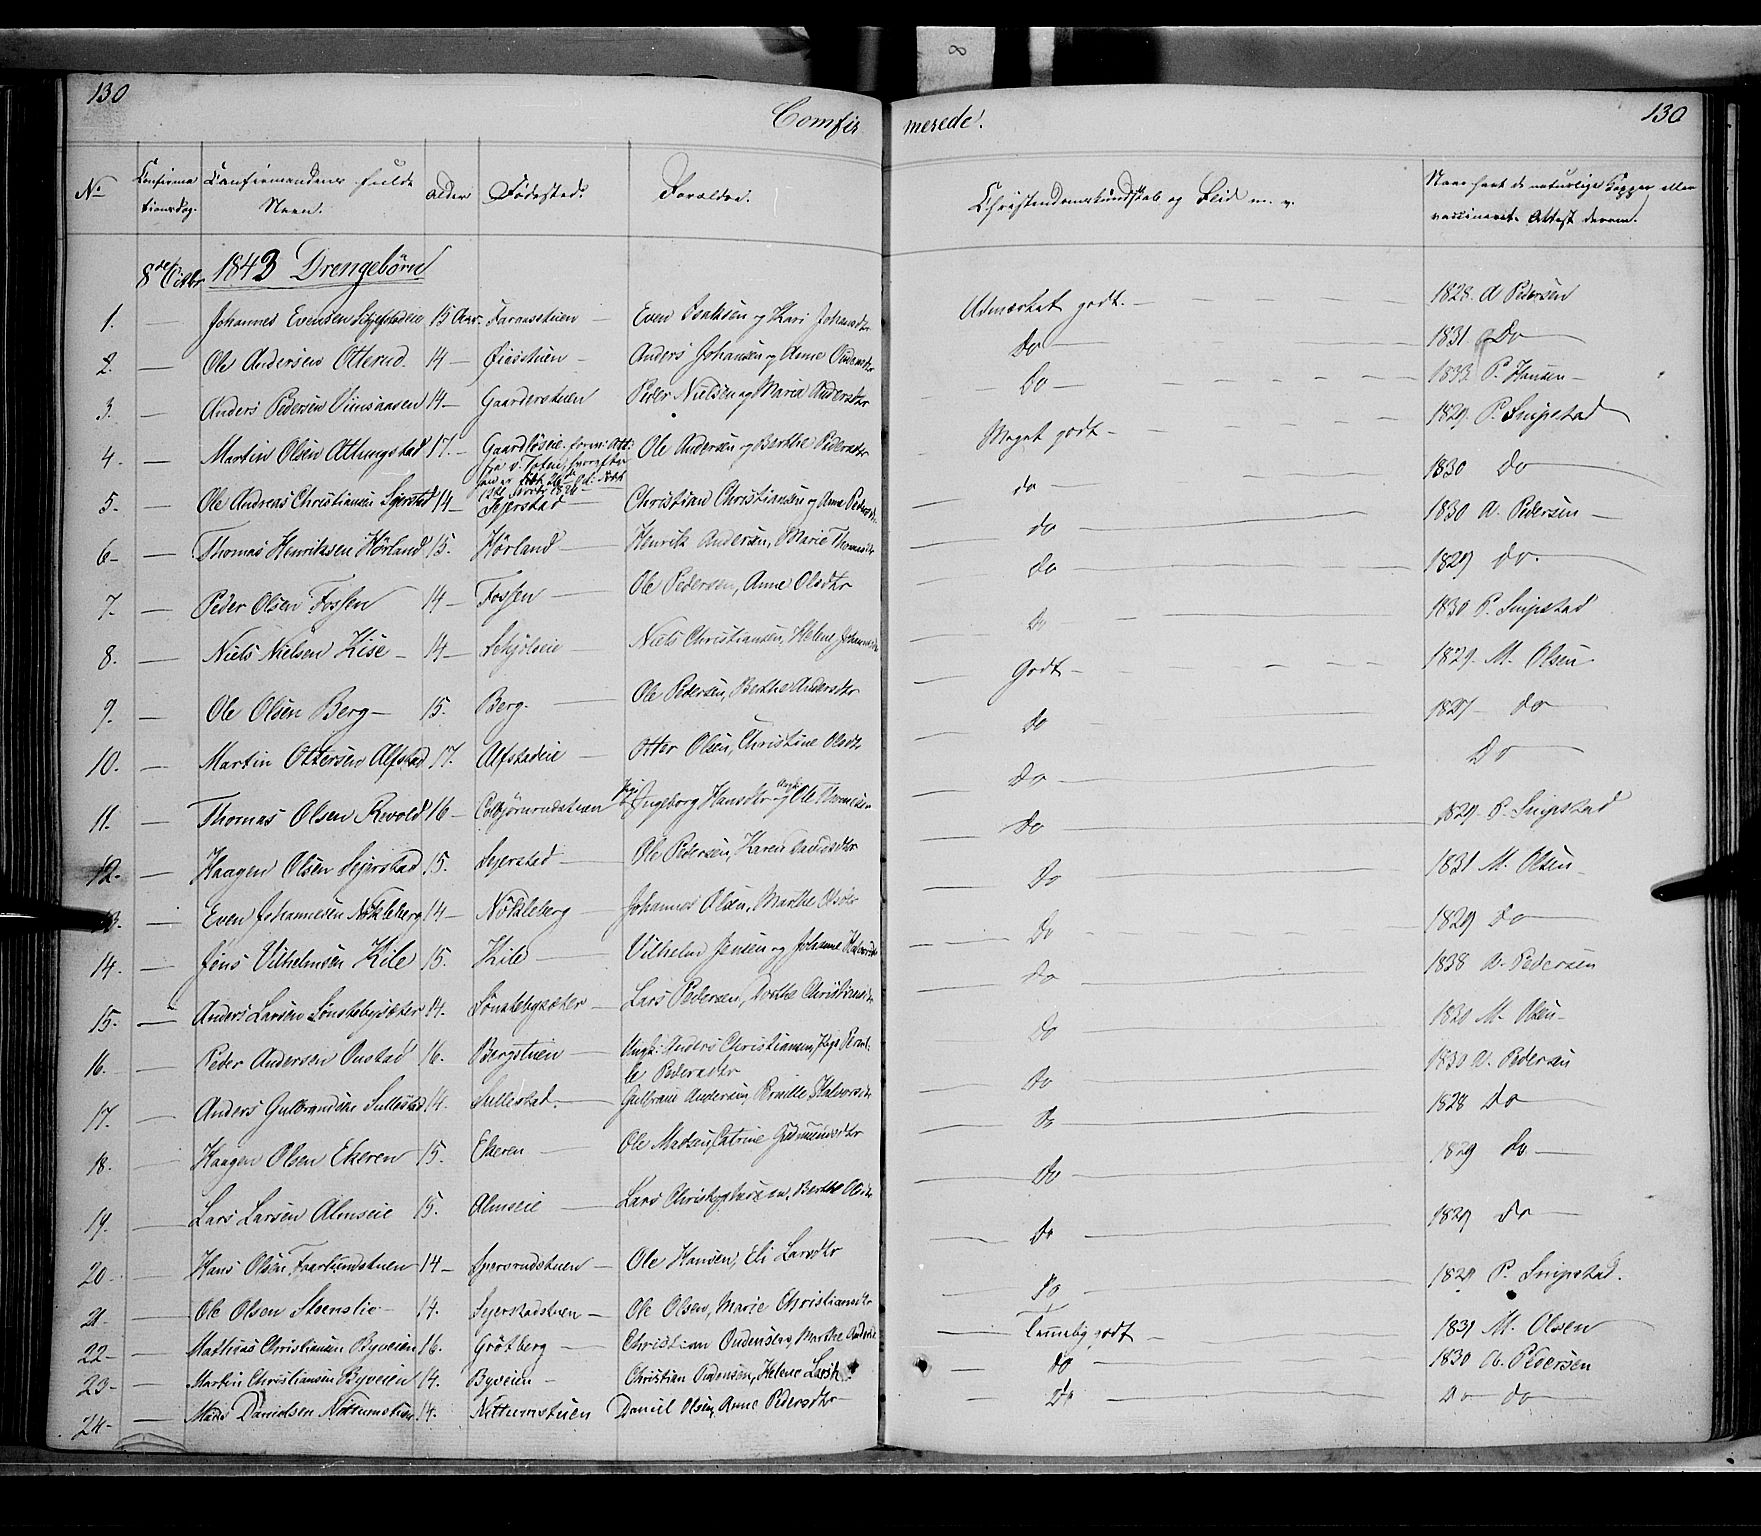 130
8
130
Comfirmerede.
No
Confirmationsdag.
Confirmandens fulde Navn.
Alder
Fødested.
Forældre.
Christendomskundskab og Flid m. v.
Naar havt de naturlige Kopper eller vaccineret. Attest derom.
8de Octbr 1843 Drengebørn
1. — Johannes Evensen 15 Aar. — Even Isaksen og Kari Johansdtr Udmærket godt. — 1828. A Pedersen
2. — Ole Andersen Otterud. 14 — Anders Johansen og Anne Do — 1831 Do
3. — Anders Pedersen 14 — Gaarderstuen Peder Nielsen og Maria Andersdtr — Do — 1833. P. Hansen —
4. — Martin Olsen 17. — Ole Andersen og Berthe Pedersdtr Meget godt — 1829. P. Snipstad
5. — Ole Andreas Christiansen Sejerstad 14 — Sejerstad — Christian Christiansen og Anne Pedersdtr — do — 1830 do
6. — Thomas Henriksen Hörland 15. Hörland — Henrik Andersen, Marie Thomasdtr — do — 1830 A. Pedersen —
7. — Peder Olsen Fossen 14 — Fossen — Ole Pedersen, Anne Olsdtr — do — 1829 do.
8. — Niels Nielsen Kise — 14 — Niels Christiansen, Helene Johansdtr — Do — 1830 P. Snipstad
9. — Ole Olsen Berg — 15. Berg. — Ole Pedersen, Berthe Andersdtr — Godt — 1829. M. Olsen
10. — Martin Ottersen Alfstad 17. Alfstadeie — Otter Olsen, Christine Olsdtr — do — 1827 — do
11. — Thomas Olsen Revold 16 — Ingeborg Hansdtr og Ole — Do — Do
12. — Haagen Olsen Sejerstad 15. Sejersted — Ole Pedersen, Karen — Do — 1829. P. Snipstad
13. — Even Johannesen Nökleberg 14 — Nökleberg — Johannes Olsen, Marthe Olsdtr — Do — 1831 M. Olsen —
14. — Jens Vilhelmsen Kile 15. Kile — Vilhelm Jensen og Johanne Halvorsdtr — Do — 1829 do
15. — Anders Larsen 14. — Lars Pedersen, Dorthe Christiansdtr — Do — 1838 A. Pedersen
16. — Peder Andersen Onstad 16. Bergstuen — Ungk: Anders Christiansen, Pige Pernille Pedersdtr — Do — 1830 M. Olsen —
17. — Anders Gulbrandsen Sullestad 14. Sullestad. — Gulbrand Andersen, Pernille Halvorsdtr — Do — 1830 A. Pedersen
18. — Haagen Olsen Ekeren 15. Ekeren — Ole Madsen, Catrine Gudmundsdtr — Do — 1828 Do
19. — Lars Larsen Almseie 15. Almseie — Lars Christophersen, Berthe Olsdtr — Do — 1829 do —
20. — Hans Olsen Faarlundstuen 14 — Ole Hansen, Eli Larsdtr — Do — 1829 do —
21. — Ole Olsen Steenslie — 14. Sejerstadstuen — Ole Olsen, Marie Christiansdtr — Do — 1829 P. Snipstad.
22 — Mathias Christiansen Byveien 16. Grötberg — Christian Andersen, Marthe — Temmelig godt — 1831 M. Olsen
23 — Martin Christiansen Byveien 14. Byveien — Christian Andersen, Helene Larsdtr — do — 1830 A. Pedersen
24 — Mads Danielsen 14. Daniel Olsen, Anne Pedersdtr — Do — Do do —